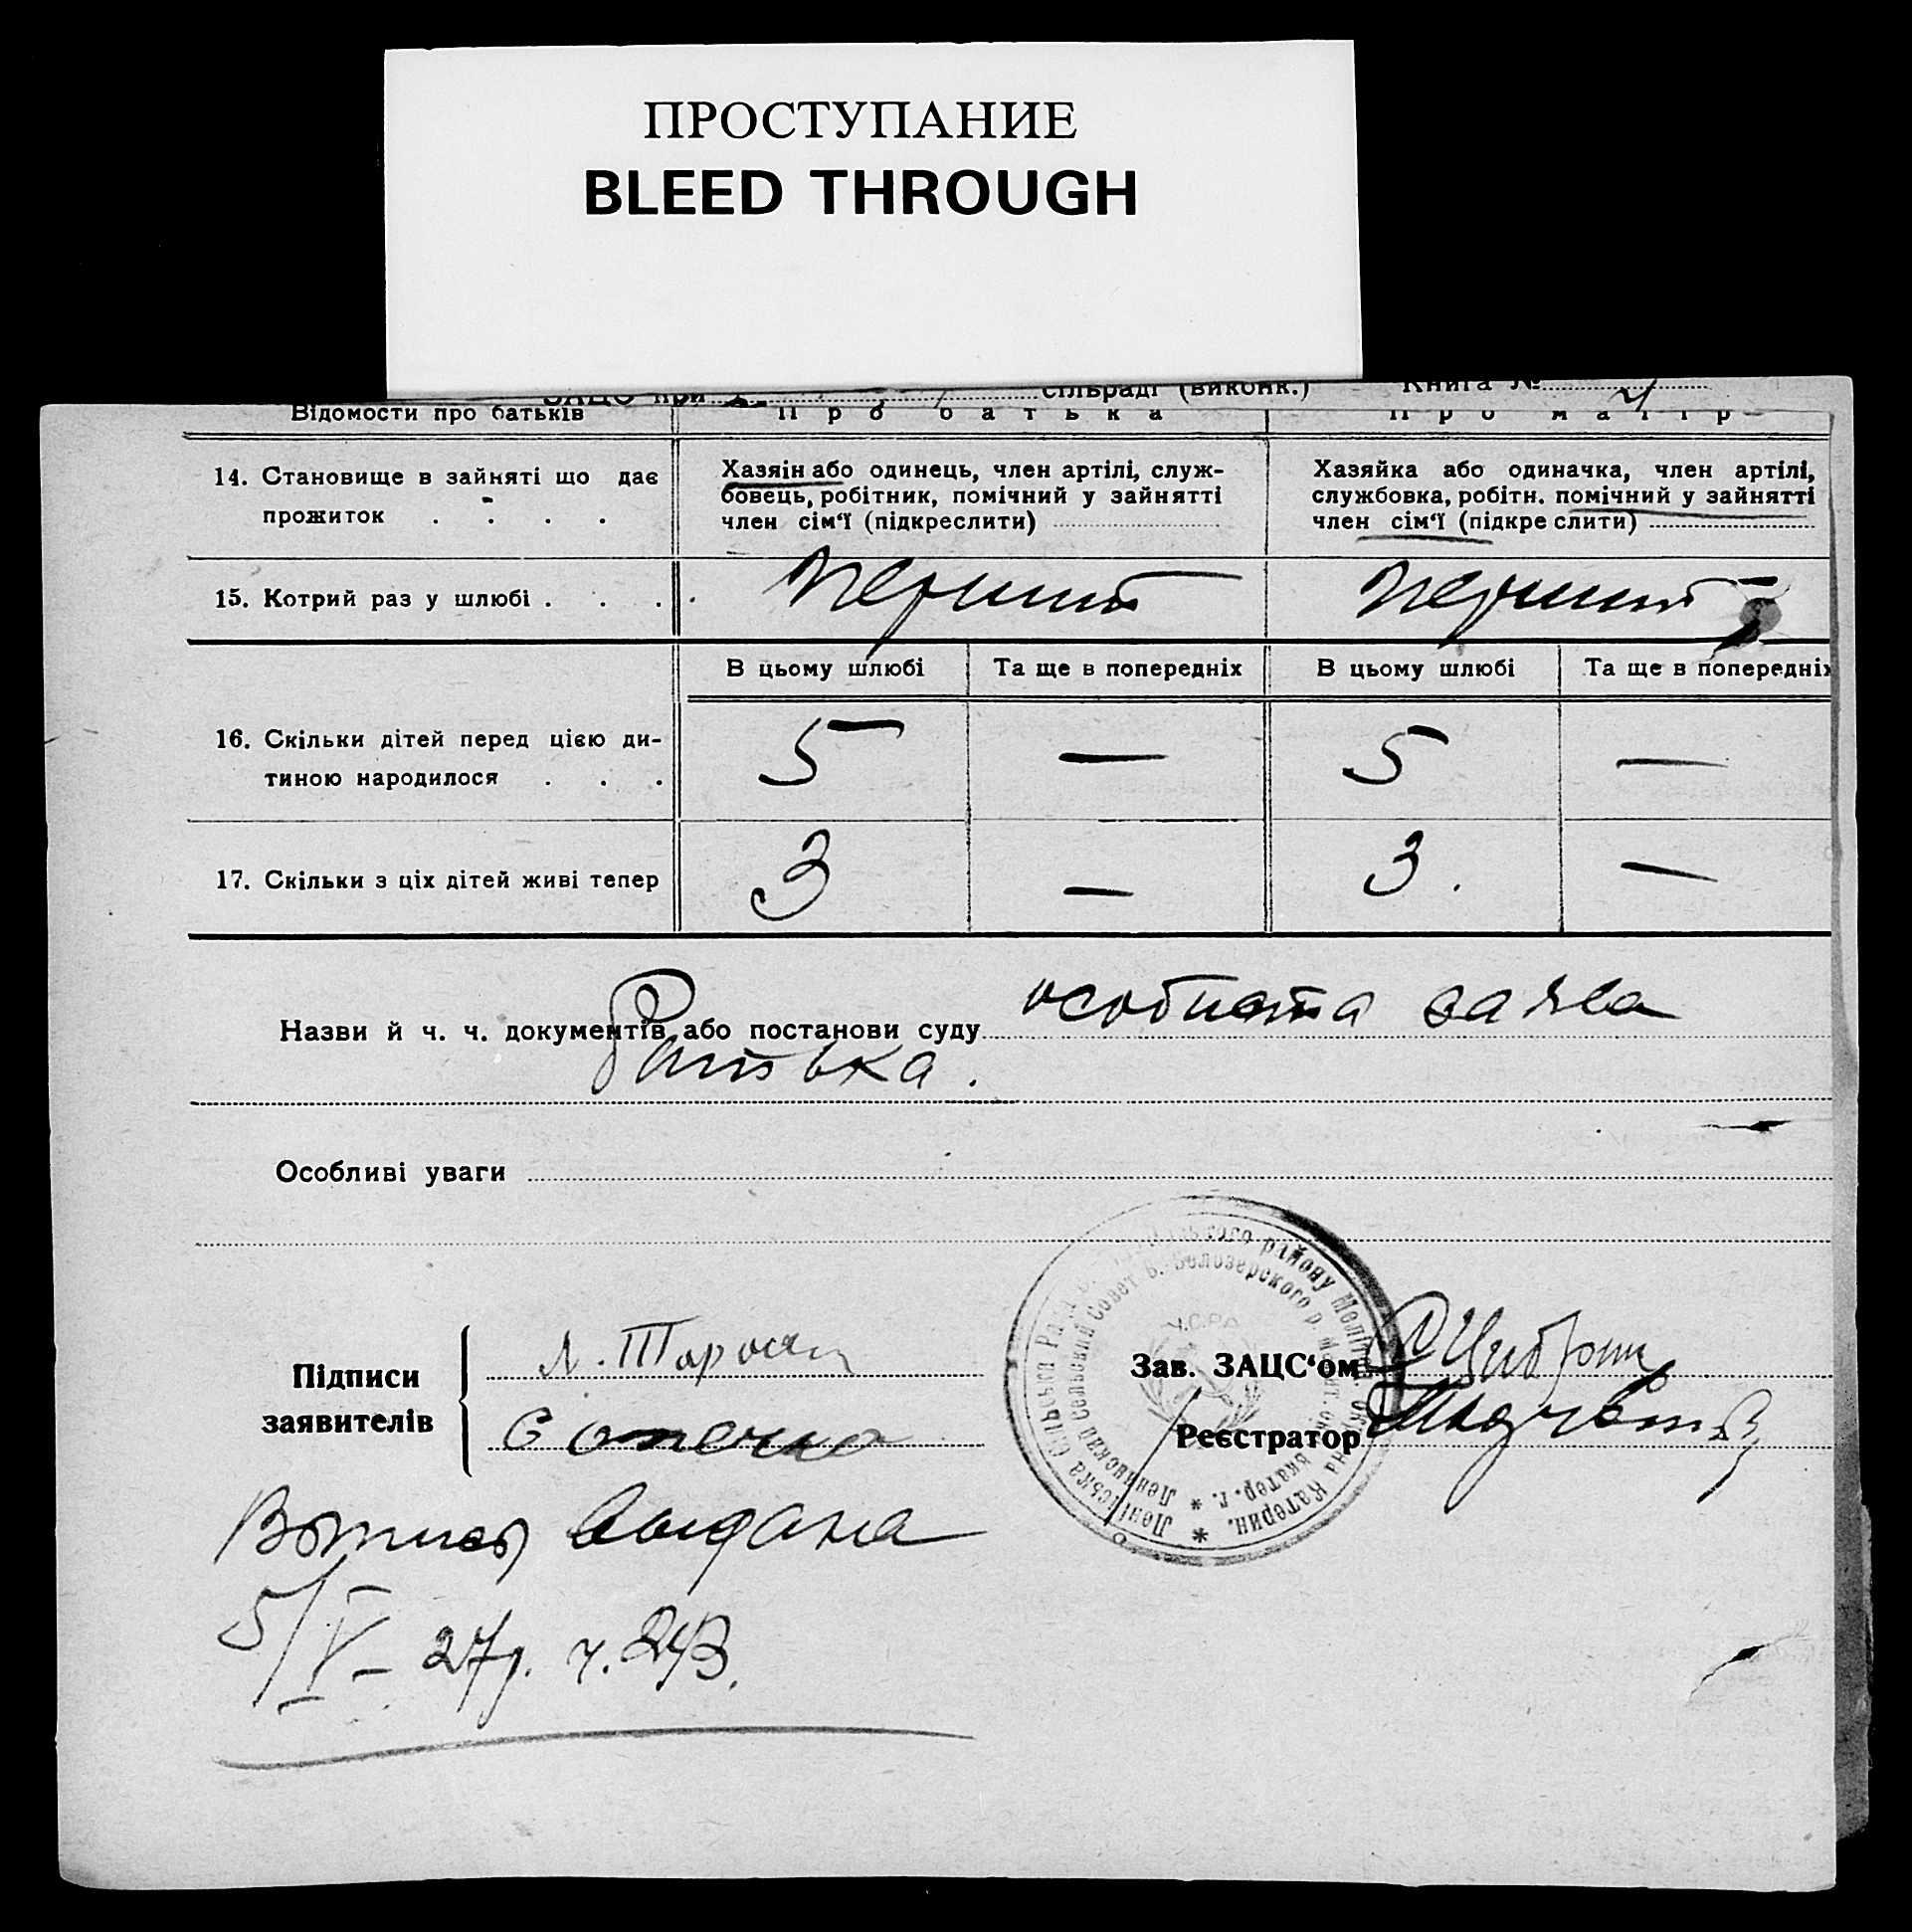 ПРОСТУПАНИЕ
BLEED THROUGH
ЗАЦС при сільраді (виконк.) Книга №
Відомости про батьків Про батька Про матір
14. Становище в зайняті що дає прожиток . . . .
Хазяін або одинець, член артілі, служ-
бовець, робітник, помічний у зайнятті
член сім‘ї (підкреслити)
Хазяйка або одиначка, член артілі,
службовка, робітн. помічний у зайнятті
член сім‘ї (підкреслити)
15. Котрий раз у шлюбі . . . . перший перший
В цьому шлюбі Та ще в попередніх В цьому шлюбі Та ще в попередніх
16. Скільки дітей перед цією ди-
тиною народилося . . . 5 — 5 —
17. Скільки з ціх дітей живі тепер 3 — 3. —
Назви й ч. ч. документів або постанови суду особиста заява
батька.
Особливі уваги
Підписи
заявителів
Зав. ЗАЦС‘ом
Реєстратор
Выпись выдана
5/V – 27р. ч. 243.
району
Сельский Совет Б. Белозерского р.
У.С.Р.Р.